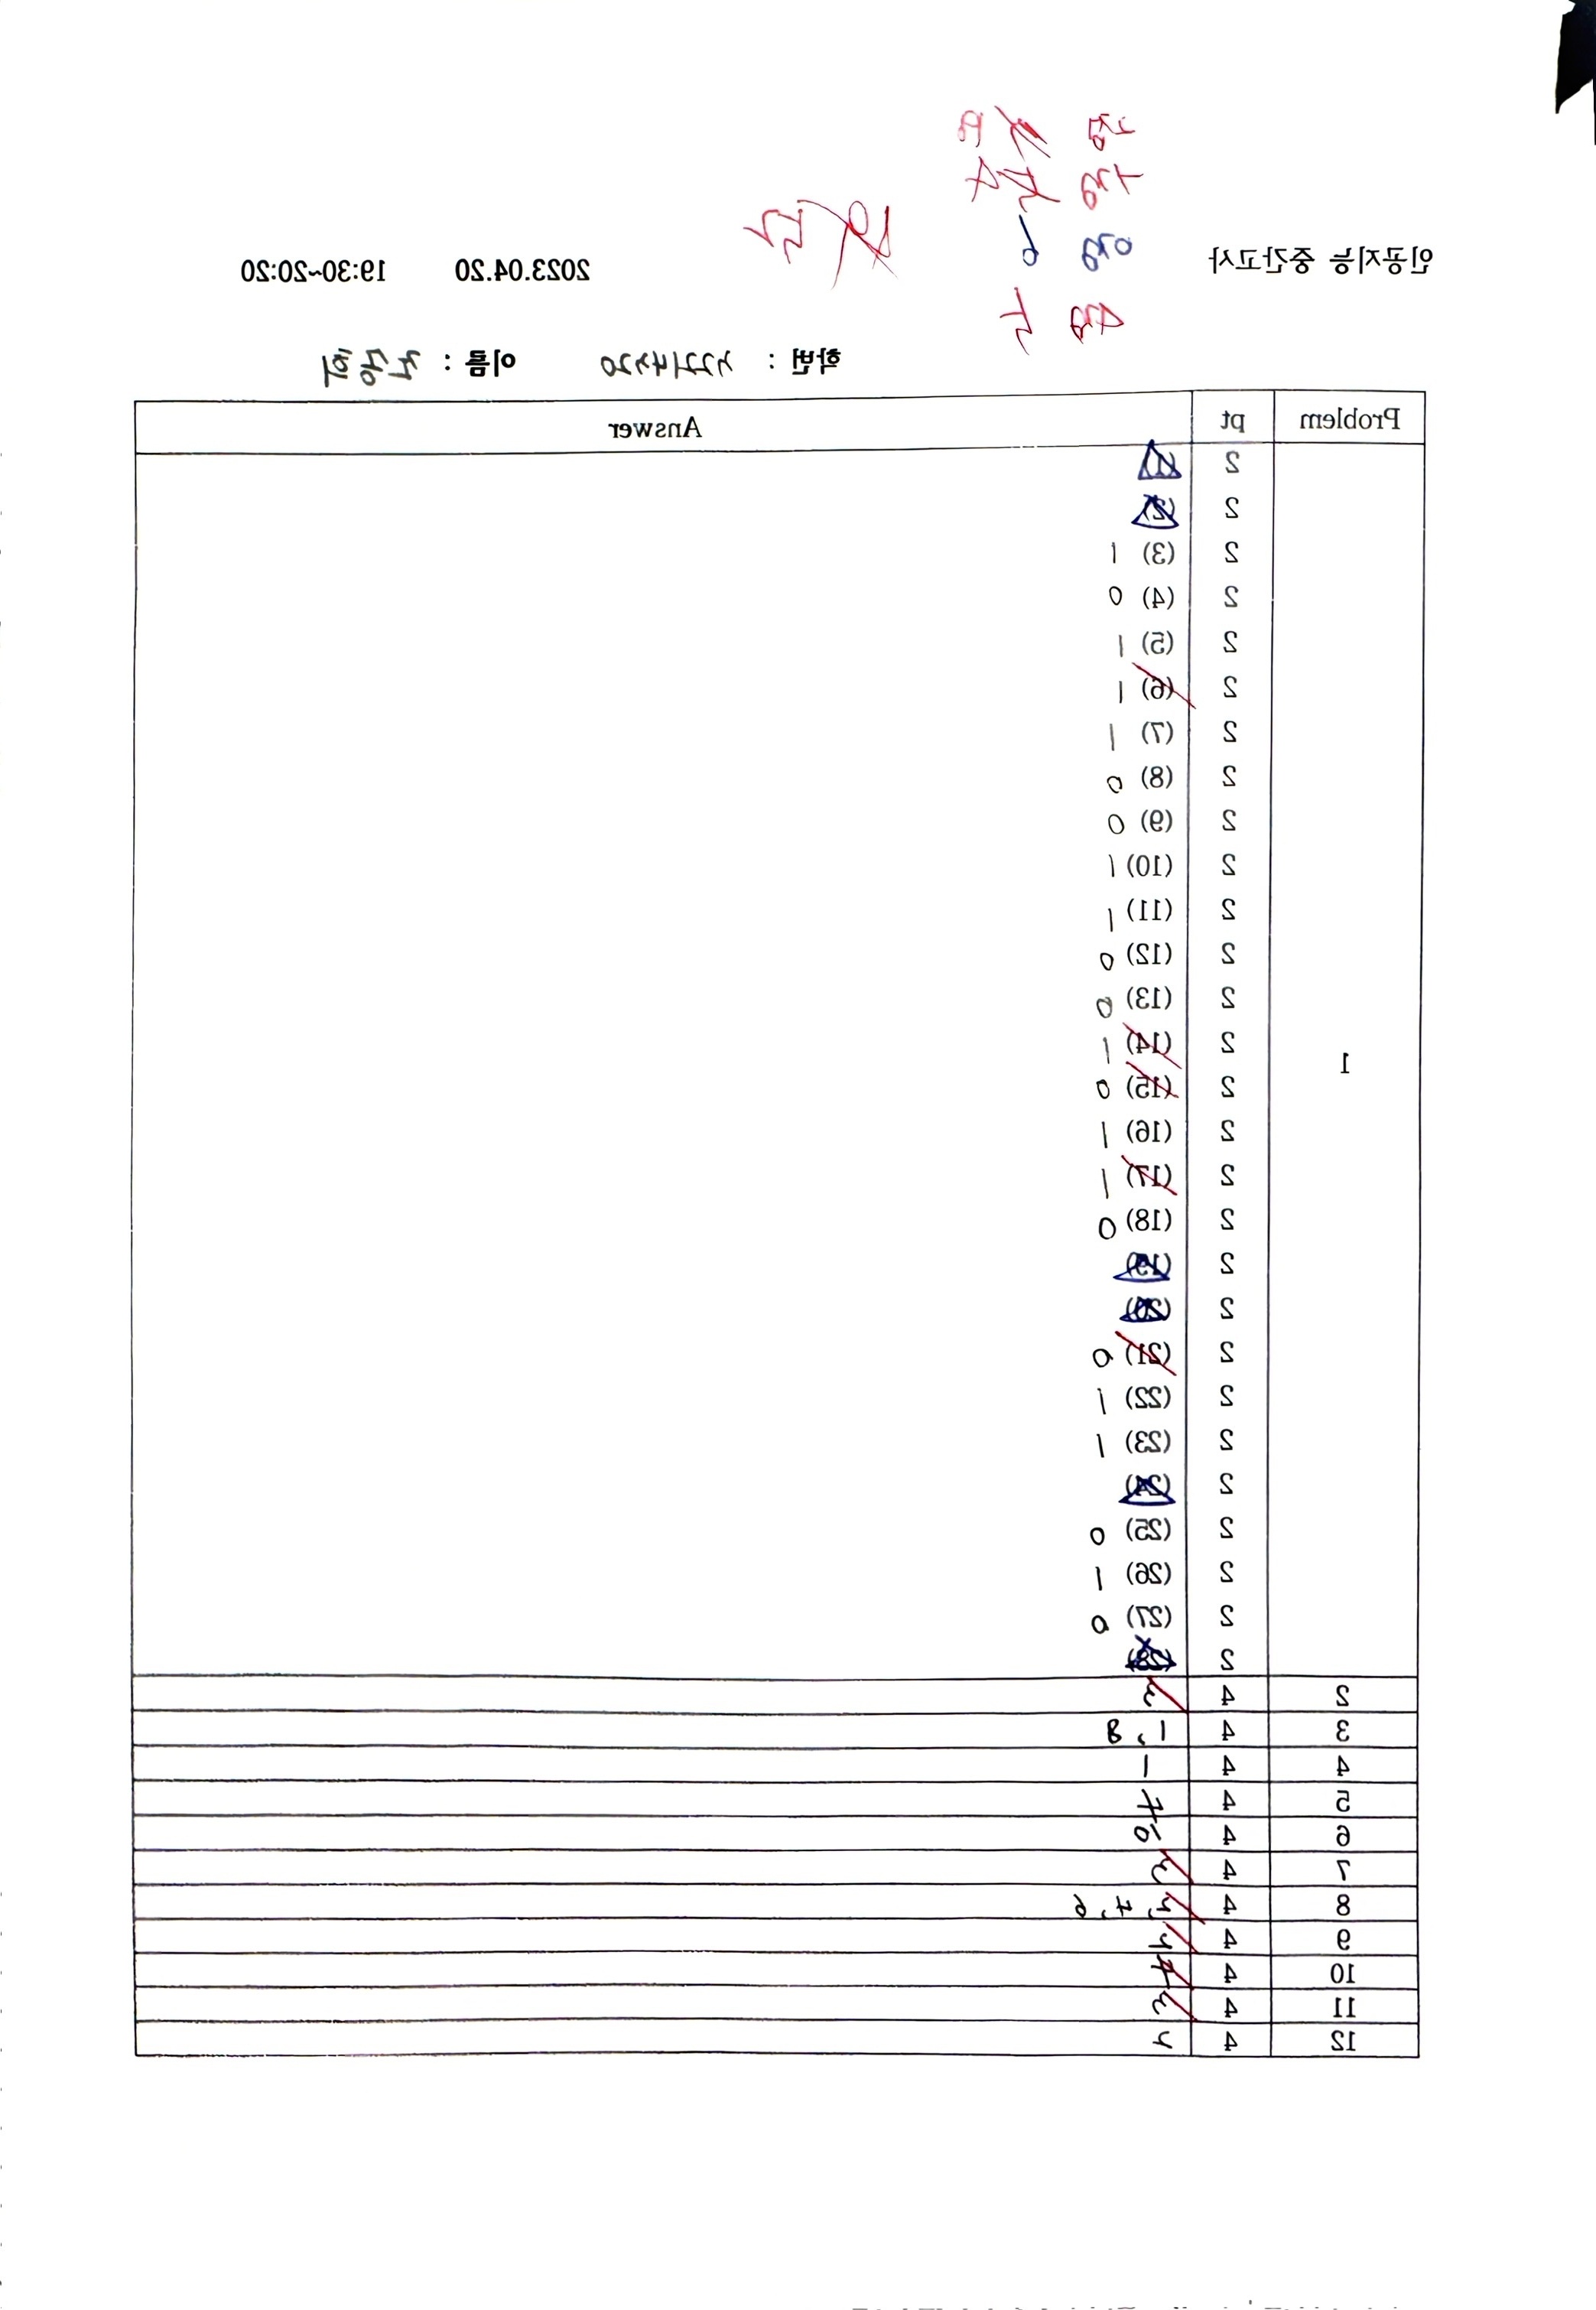 인공지능 중간고사 2023.04.20 19:30~20:20
학번 : 32214320 이름 :
Problem pt Answer
1
2
2
2 (3) 1
2 (4) 0
2 (5) 1
2 (6) 1
2 (7) 1
2 (8) 0
2 (9) 0
2 (10) 1
2 (11) 1
2 (12) 0
2 (13) 0
2 (14) 1
2 (15) 0
2 (16) 1
2 (17) 1
2 (18) 0
2 (19)
2 (20)
2 (21) 0
2 (22) 1
2 (23) 1
2 (24)
2 (25) 0
2 (26) 1
2 (27) 0
2 (28)
2 4 3
3 4 1, 8
4 4 1
5 4 7
6 4 6
7 4 3
8 4 2, 7, 6
9 4
10 4 7
11 4 3
12 4